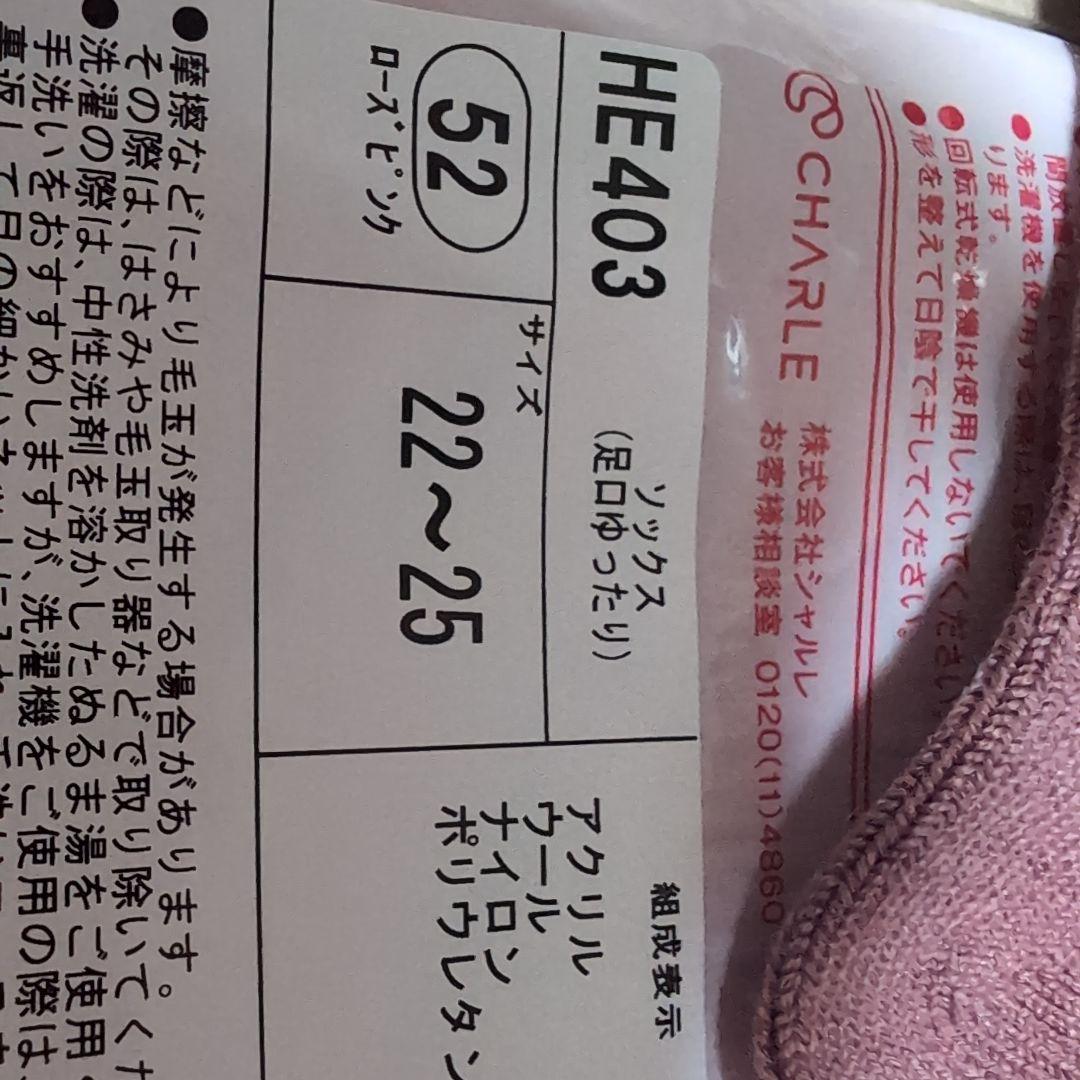 りします。
● 洗濯機を使用する際は、
● 回転式乾燥機は使用しないでください
● 形を整えて日陰で干してください。
CHARLE 株式会社シャルレ
お客様相談室 0120(11)4860
HE403 ソックス
(足口ゆったり)
52
ローズピンク
サイズ
22〜25
組成表示
アクリル
ウール
ナイロン
ポリウレタン
● 摩擦などにより毛玉が発生する場合があります。
その際は、はさみや毛玉取り器などで取り除いてくだ
● 洗濯の際は、中性洗剤を溶かしたぬるま湯をご使用
手洗いをおすすめしますが、洗濯機をご使用の際は
裏返して目の細かい